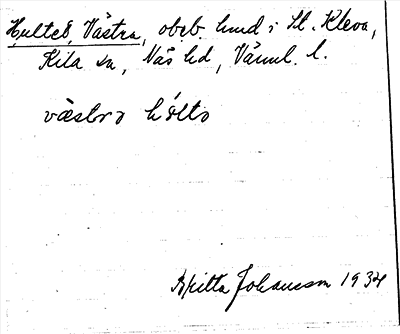 Hultet, Västra, obeb. hmd i St. Kleva,
Kila sn, Näs hd, Värml. l.
väsbro hölto
Britta Johansson 1934